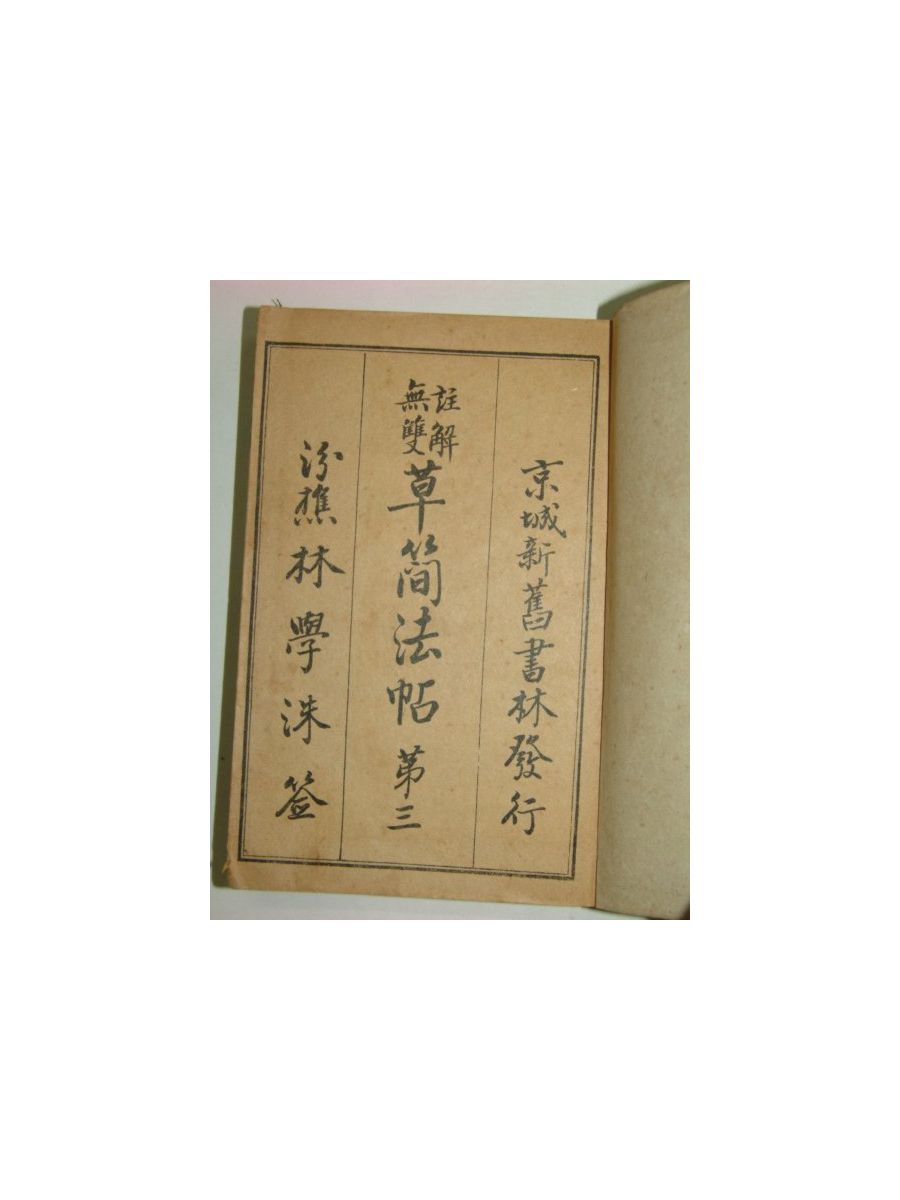 京城新舊書林發行
註解
無雙
草簡法帖 第三
汾樵林學洙签